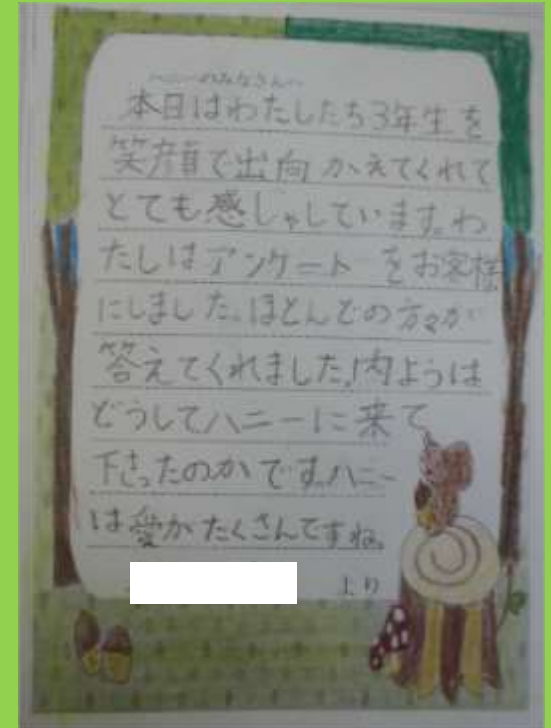 ハニーのみなさんへ
本日はわたしたち3年生を
笑顔で出向かえてくれて
とても感しゃしています。わ
たしはアンケートをお客様
にしました。ほとんどの方々が
答えてくれました。内ようは
どうしてハニーに来て
下さったのかです。ハニー
は愛がたくさんですね。
より